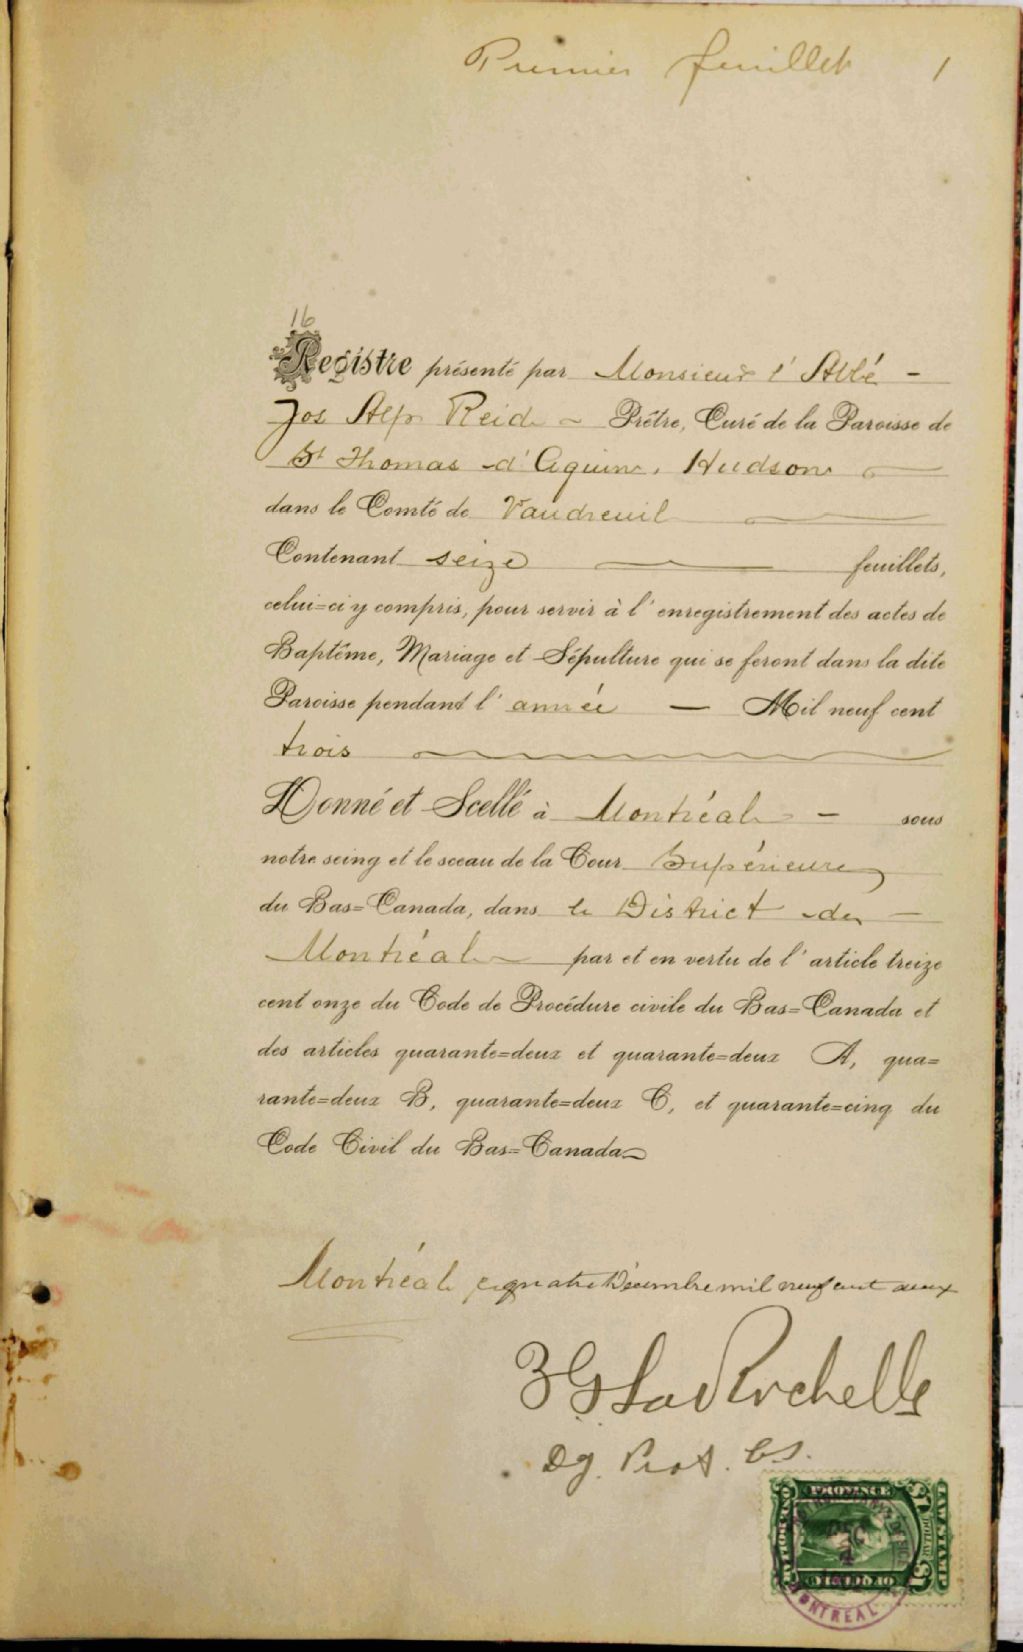 Premier feuillet 1
16
Registre présenté par Monsieur l'Abbé -
Jos Alp Reid - Prêtre, Curé de la Paroisse de
St Thomas d'Aquin, Hudson
dans le Comté de Vaudreuil
Contenant seize feuillets,
celui=ci y compris, pour servir à l'enregistrement des actes de
Baptême, Mariage et Sépulture qui se feront dans la dite
Paroisse pendant l'année — Mil neuf cent
trois
Donné et Scellé à Montréal - sous
notre seing et le sceau de la Cour Supérieure
du Bas=Canada, dans le District de -
Montréal par et en vertu de l'article treize
cent onze du Code de Procédure civile du Bas=Canada et
des articles quarante=deux et quarante=deux A, qua=
rante=deux B, quarante=deux C, et quarante=cinq du
Code Civil du Bas=Canada
Montréal ce quatre Décembre mil neuf cent deux
LaRochelle
Prot. C.S.
LAW STAMP
$1 DOLLAR
PROVINCE
DEC
4
MONTREAL